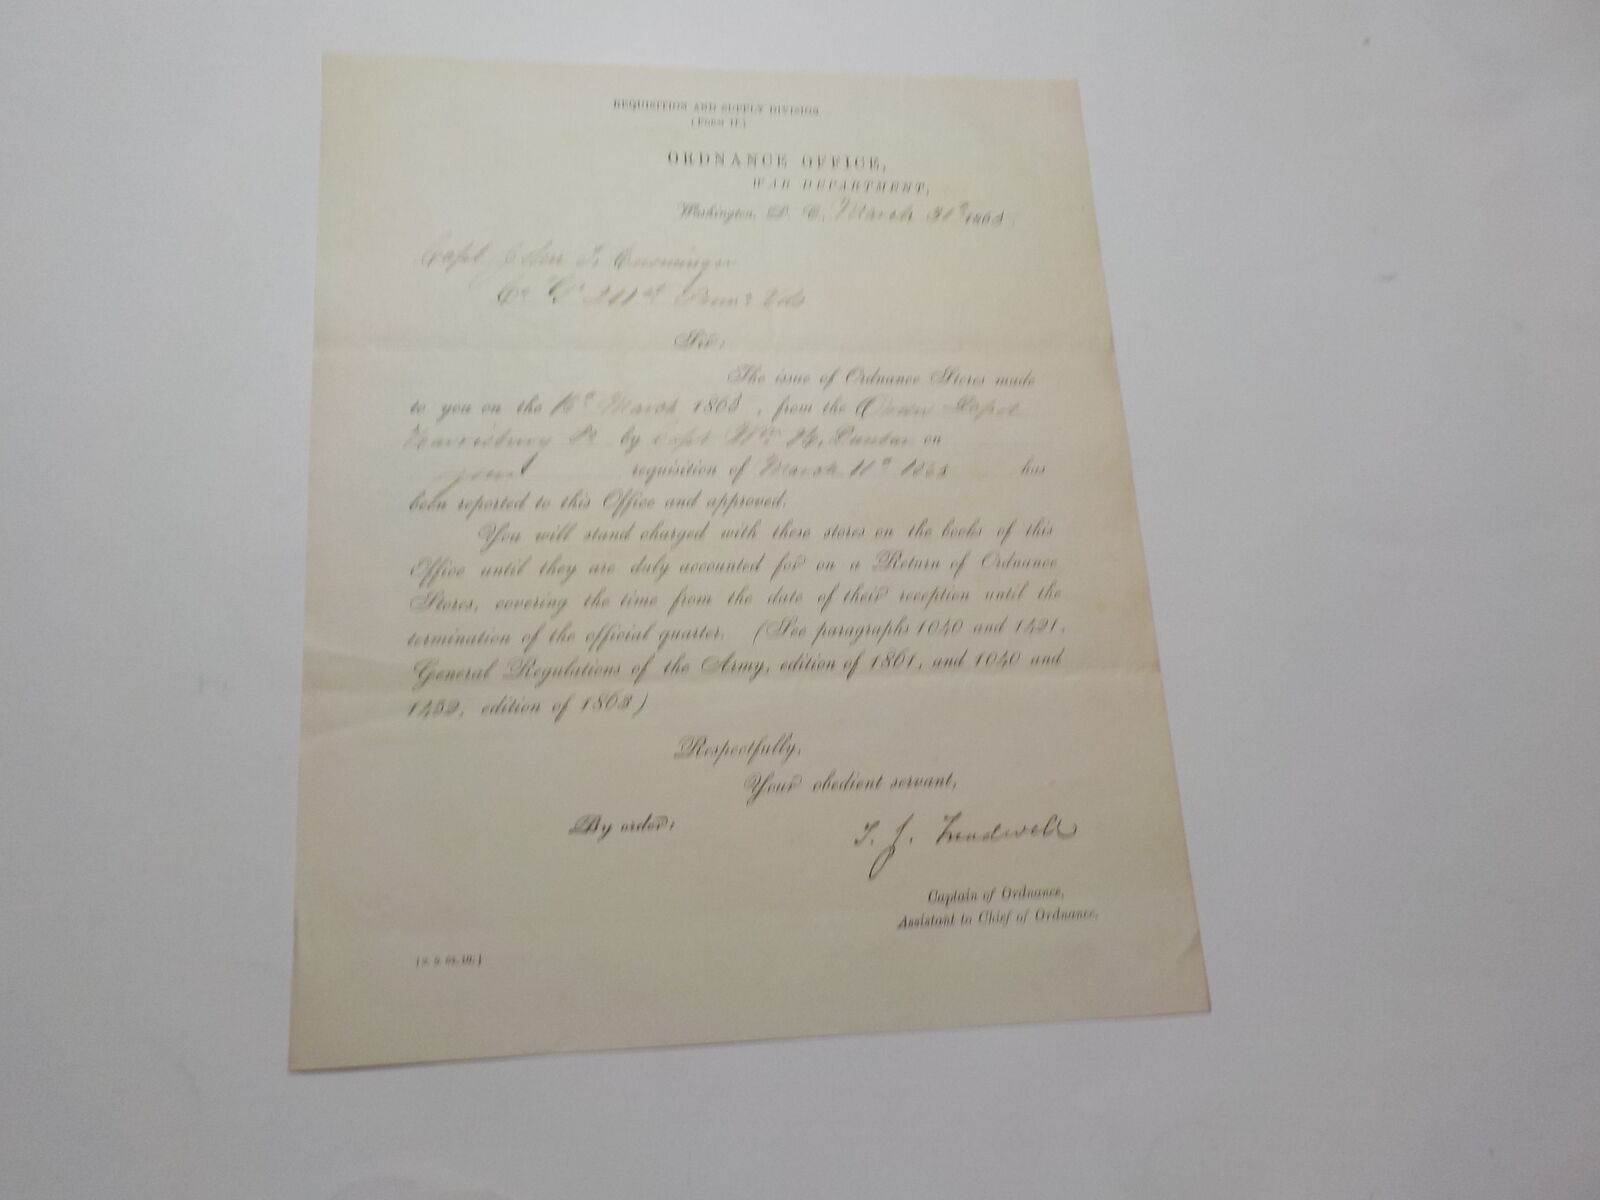 REQUISITION AND SUPPLY DIVISION
(FORM 11)
ORDNANCE OFFICE,
WAR DEPARTMENT,
Washington, D. C., March 31st 1865.
Capt
Co "G" 201st Penna Vols
Sir:
The issue of Ordnance Stores made
to you on the March 1865, from the Depot
Harrisburg Pa by Capt Wm H. Dunbar on
your requisition of March 11th 1865 has
been reported to this Office and approved.
You will stand charged with these stores on the books of this
Office until they are duly accounted for on a Return of Ordnance
Stores, covering the time from the date of their reception until the
termination of the official quarter. (See paragraphs 1040 and 1421,
General Regulations of the Army, edition of 1861, and 1040 and
1432, edition of 1863)
Respectfully,
Your obedient servant,
By order: T. J. Treadwell
Captain of Ordnance,
Assistant to Chief of Ordnance.